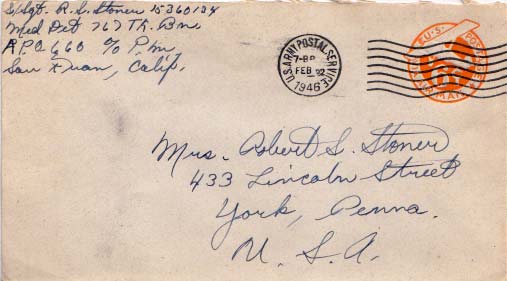 S/Sgt. R. S. Stoner 15360134
Med Det 767 Th. Bn.
A.P.O. 660 c/o P.m.
San Fran, Calif.
U.S. ARMY POSTAL SERVICE
7-8P
FEB
1946
U.S. POSTAGE
Mrs. Robert S. Stoner
433 Lincoln Street
York, Penna.
U. S. A.